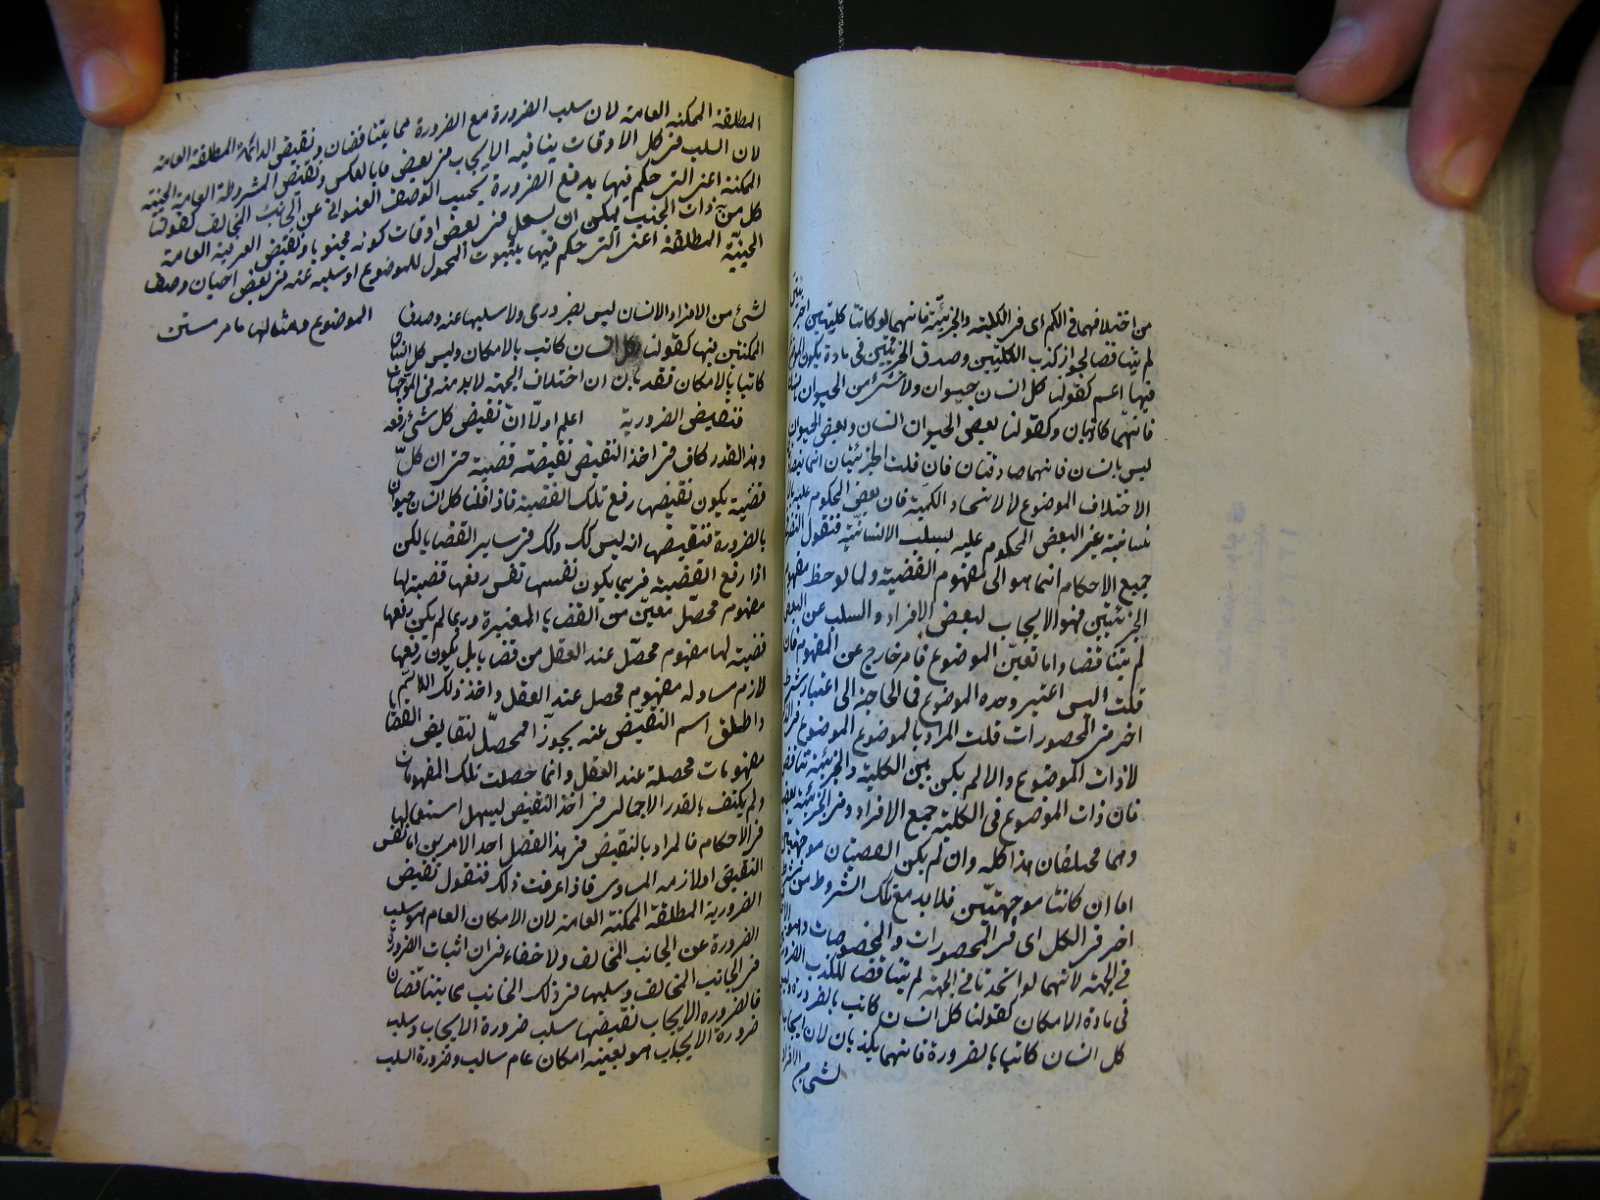 من اختلافهما فى الكم اى فى الكلية والجزئية فانهما لو كانتا كليتين او جز
لم يتناقضا لجواز كذب الكليتين وصدق الجزئيتين فى مادة يكون
فيها اعم كقولنا كل انسان حيوان ولا شئ من الحيوان
فانهما كاذبتان وكقولنا بعض الحيوان انسان وبعض الحيوان
ليس بانسان فانهما صادقتان فان قلت الجزئيتان انما
الاختلاف الموضوع لا لاتحاد الكمية فان بعض المحكوم عليه
غير البعض المحكوم عليه بسلب الانسانية فنقول
جميع الاحكام انما هو الى مفهوم القضية ولما لوحظ مفهوم
الجزئيتين فهو الايجاب لبعض الافراد والسلب عن البعض
لم يتناقضا واما تعيين الموضوع فامر خارج عن المفهوم فان
قلت اليس اعتبر وحدة الموضوع فما الحاجة الى اعتبار شرط
اخر فى المحصورات قلت المراد بالموضوع الموضوع
لا ذات الموضوع والا لم يكن بين الكلية والجزئية تناقض
فان ذات الموضوع فى الكلية جميع الافراد وفى الجزئية بعض
وهما مختلفان هذا كله وان لم يكن القضيتان موجهتين
اما ان كانتا موجهتين فلا بد مع تلك الشروط من
اخر فى الكل اى فى المحصورات والمخصوصات وهو
فى الجهة لانهما لو اتحدتا فى الجهة لم يتناقضا لكذب
فى مادة الامكان كقولنا كل انسان كاتب بالضرورة وليس
كل انسان كاتبا بالضرورة فانهما يكذبان لان ايجاب
لشئ من الافراد
المطلقة الممكنة العامة لان سلب الضرورة مع الضرورة مما يتناقضان ونقيض الدائمة المطلقة العامة
لان السلب فى كل الاوقات ينافيه الايجاب فى بعض وبالعكس ونقيض المشروطة العامة الحينية
الممكنة اعنى التى حكم فيها برفع الضرورة بحسب الوصف العنوانى عن الجانب المخالف كقولنا
كل من به ذات الجنب يمكن ان يسعل فى بعض اوقات كونه مجنوبا ونقيض العرفية العامة
الحينية المطلقة اعنى التى حكم فيها بثبوت المحمول للموضوع او سلبه عنه فى بعض احيان وصف
الموضوع ومثالها ما مر
لشئ من الافراد الانسان ليس بضرورى ولا سلبها عنه وصدق
الممكنتين فيها كقولنا كل انسان كاتب بالامكان وليس كل انسان
كاتبا بالامكان فقد بان ان اختلاف الجهة لا بد منه فى الموجهات
فنقيض الضرورية اعلم اولا ان نقيض كل شئ رفعه
وهذا القدر كاف فى اخذ النقيض نقيضه قضية حتى ان كل
قضية يكون نقيضها رفع تلك القضية فاذا قلنا كل انسان حيوان
بالضرورة فنقيضها انه ليس كك وكك فى ساير القضايا لكن
اذا رفع القضية فربما يكون نفسها نفس رفعها قضية لها
مفهوم محصل معين من القضايا المعتبرة وربما لم يكن رفعها
قضية لها مفهوم محصل عند العقل من قضايا بل يكون رفعها
لازم مساو له مفهوم محصل عند العقل واخذ ذلك اللازم
واطلق اسم النقيض عنه المحصل لنقايض القضايا
مفهومات محصلة عند العقل وانما حصلت تلك المفهومات
ولم يكتف بالقدر الاجمالى فى اخذ النقيض ليسهل استعمالها
فى الاحكام فالمراد بالنقيض فى هذا الفصل احد الامرين اما نفس
النقيض او لازمه المساوى فاذا عرفت ذلك فنقول نقيض
الضرورية المطلقة الممكنة العامة لان الامكان العام هو سلب
الضرورة عن الجانب المخالف ولا خفاء فى ان اثبات الضرورة
فى الجانب المخالف وسلبها فى ذلك الجانب مما يتناقضان
فالضرورة الايجاب نقيضها سلب ضرورة الايجاب وسلب
ضرورة الايجاب هو بعينه امكان عام سالب وضرورة السلب